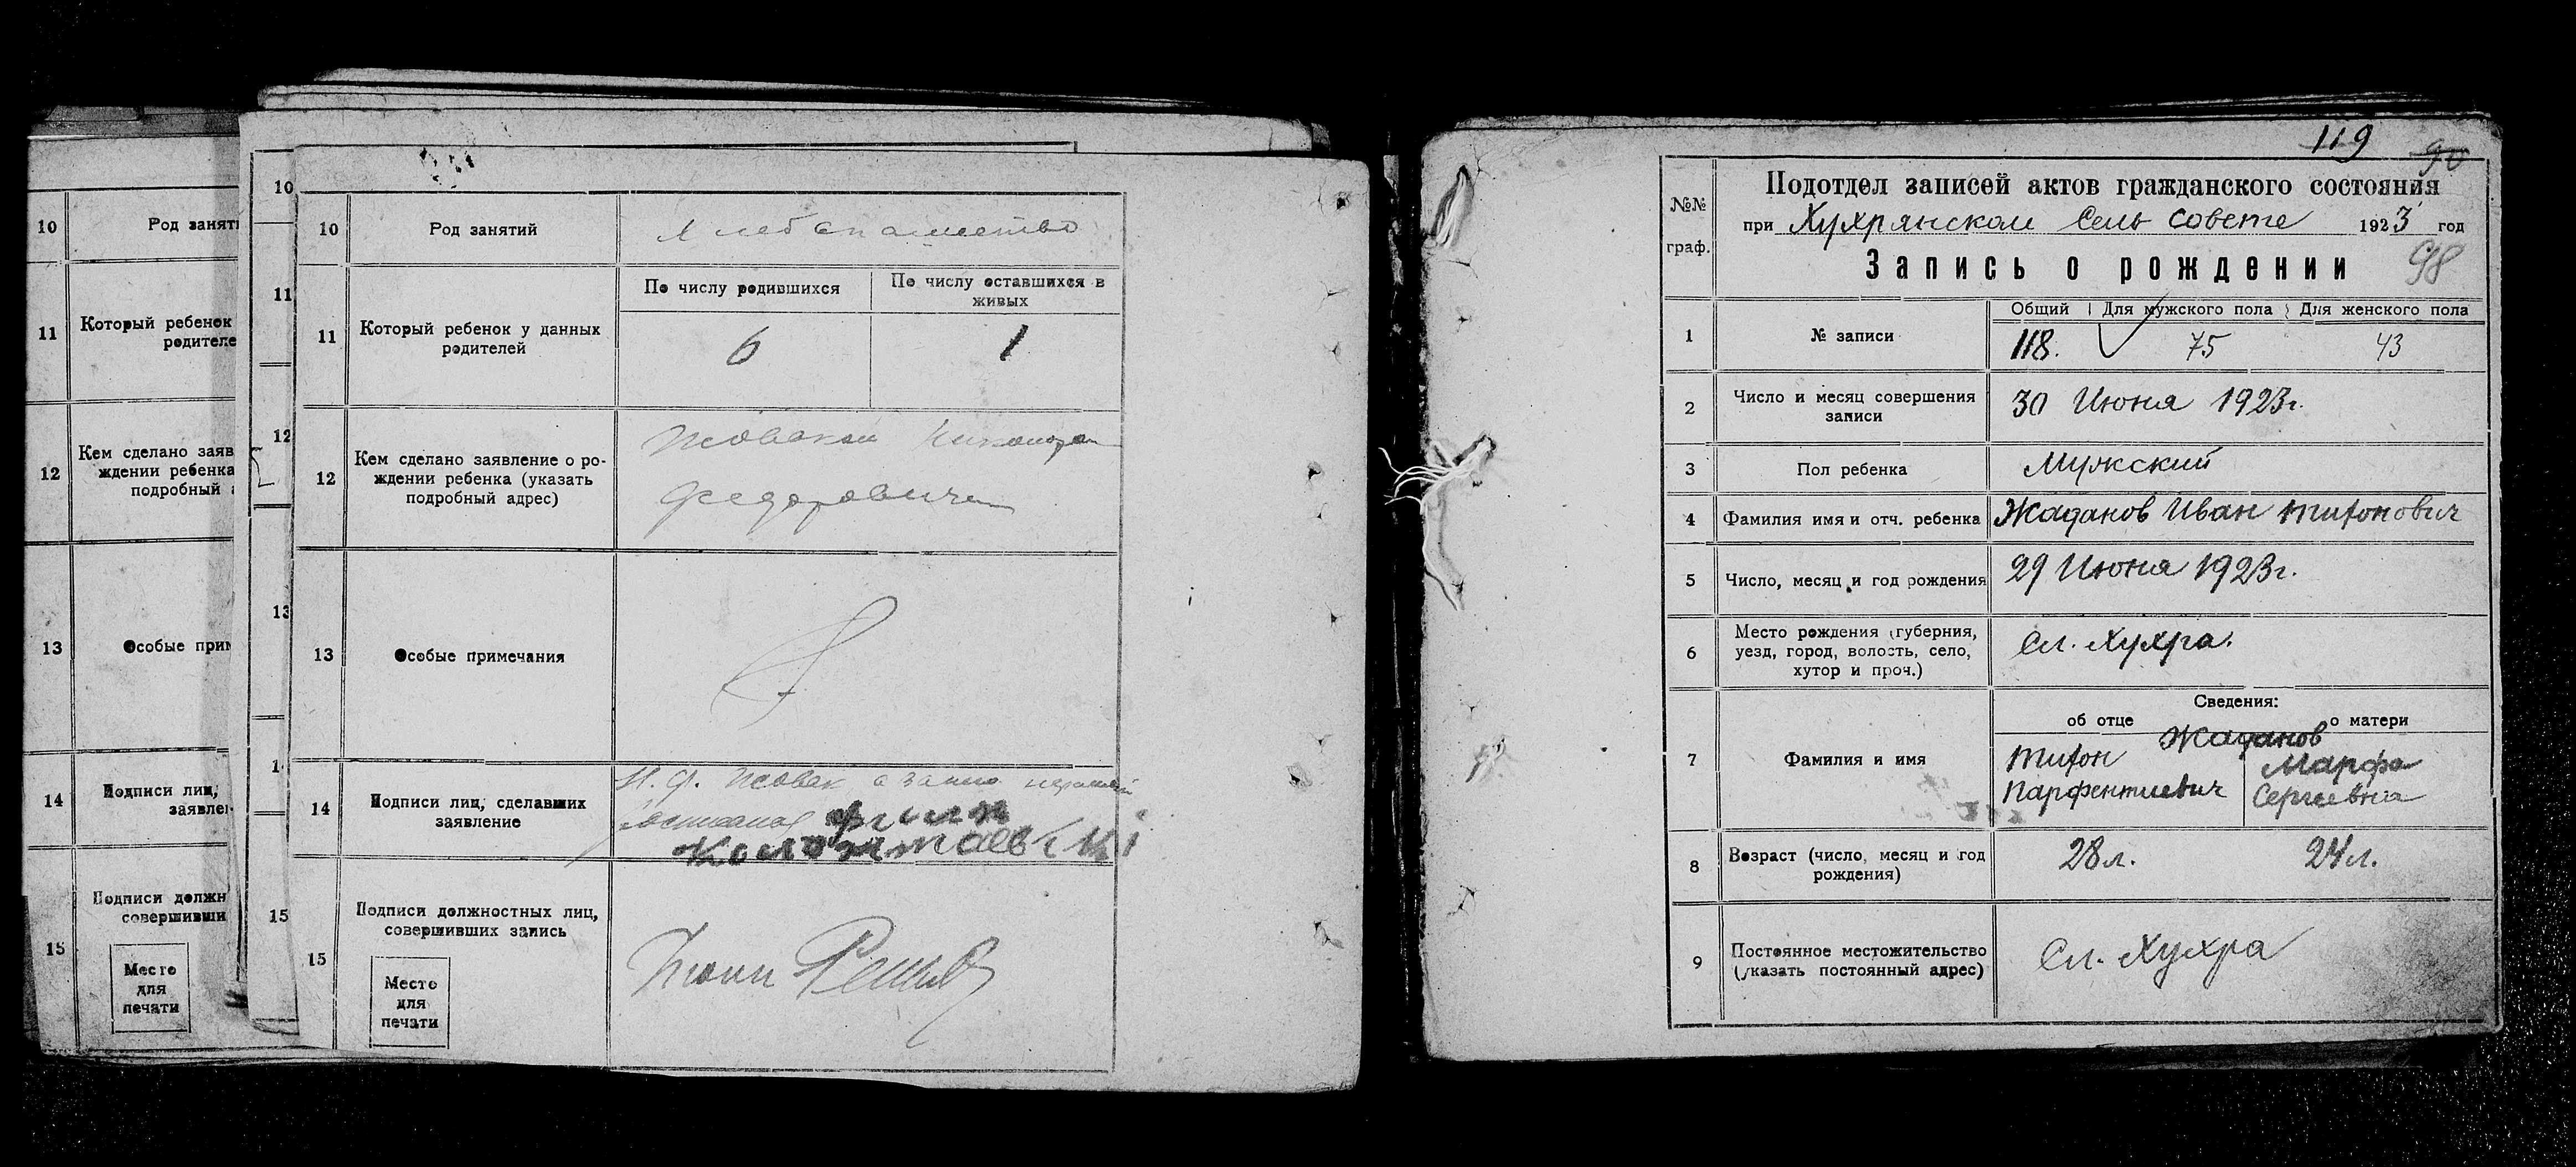 10
Род занят
11
Который ребенок
родителе
12
Кем сделано заяв
ждении ребенка
подробный
13
Особые прим
14
Подписи лиц,
заявле
15
Подписи должн
совершивши
Место
для
печати
10
11
12
13
1
15
10
Род занятий
Хлебопашество
11
Который ребенок у данных
родителей
По числу родившихся
По числу оставшихся в
живых
6
1
12
Кем сделано заявление о ро-
ждении ребенка (указать
подробный адрес)
Федоровичем
13
Особые примечания
14
Подписи лиц, сделавших
заявление
Н. Ф.
15
Подписи должностных лиц,
совершивших запись
Место
для
печати
119
90
№№
граф.
Подотдел записей актов гражданского состояния
при Хухрянском Сель Совете 1923 год
Запись о рождении
98
1
№ записи
Общий Для мужского пола Для женского пола
118. 75 43
2
Число и месяц совершения
записи
30 Июня 1923г.
3
Пол ребенка
Мужский
4
Фамилия имя и отч. ребенка
Жаданов Иван Титонович
5
Число, месяц и год рождения
29 Июня 1923г.
6
Место рождения (губерния,
уезд, город, волость, село,
хутор и проч.)
Сл. Хухра.
7
Фамилия и имя
Сведения:
об отце
о матери
Жаданов
Титон
Парфентиевич
Марфа
Сергеевна
8
Возраст (число, месяц и год
рождения)
28л.
24л.
9
Постоянное местожительство
(указать постоянный адрес)
Сл. Хухра